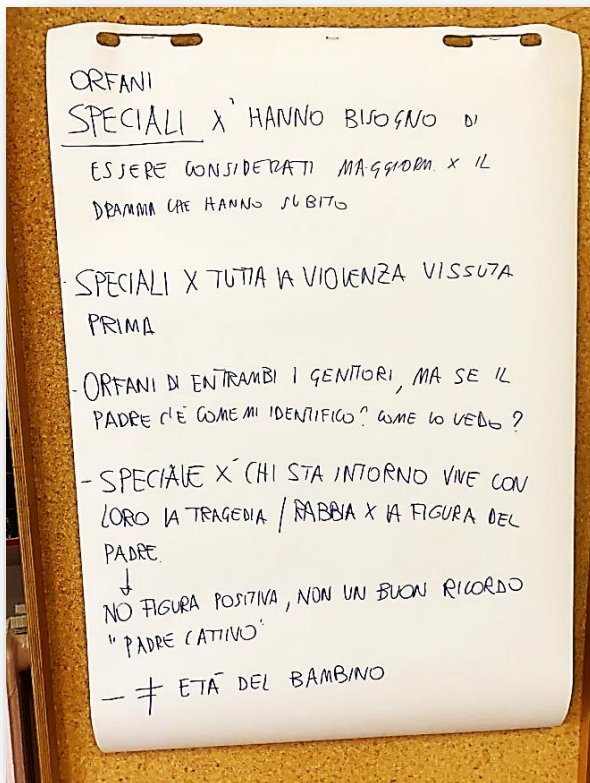 ORFANI
SPECIALI X' HANNO BISOGNO DI
ESSERE CONSIDERATI MAGGIORM. X IL
DRAMMA CHE HANNO SUBITO
- SPECIALI X TUTTA LA VIOLENZA VISSUTA
PRIMA
- ORFANI DI ENTRAMBI I GENITORI, MA SE IL
PADRE C'È COME MI IDENTIFICO? COME LO VEDO?
- SPECIALE X' CHI STA INTORNO VIVE CON
LORO LA TRAGEDIA / RABBIA X LA FIGURA DEL
PADRE.
↓
NO FIGURA POSITIVA, NON UN BUON RICORDO
"PADRE CATTIVO"
- ≠ ETÀ DEL BAMBINO